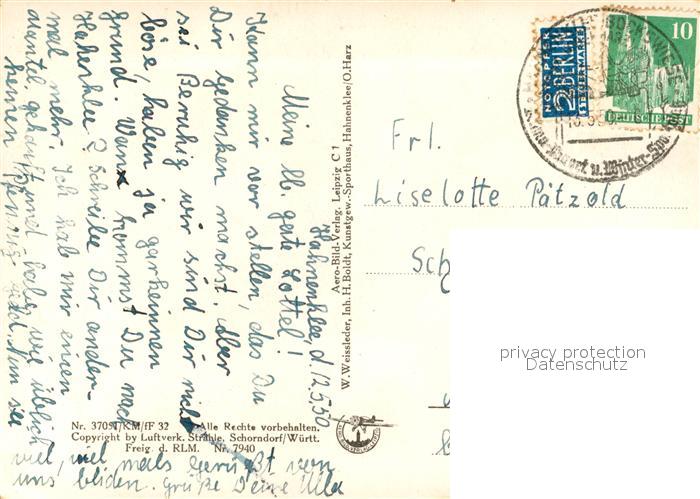 Hahnenklee, d. 12.5.50
Meine lb. gute Lottel!
Kann mir vor stellen, das Du
Dir gedanken machst. Aber
sei Beruhig wir sind Dir nicht
böse, haben ja garkeinnen
grund. Wann kommst Du nach
Hahenklee? Schreibe Dir ander-
mal mehr. Ich hab mir einen
Mantel gekauft und habe, wie üblich
keinen Pfennig Geld. Nun sei
viel, viel mals gerüßt von
uns beiden. grüße Deine Ulla
W. Weissleder, Inh. H. Boldt, Kunstgew.-Sporthaus, Hahnenklee/O. Harz
Aero-Bild-Verlag, Leipzig C 1
Nr. 37091/KM/fF 32 Alle Rechte vorbehalten.
Copyright by Luftverk. Strähle, Schorndorf/Württ.
Freig. d. RLM. Nr. 7940
NOTOPFER
2 BERLIN
STEUERMARKE
10
DEUTSCHE POST
u. Winter-
Frl.
Liselotte Pätzold
Sch
privacy protection
Datenschutz